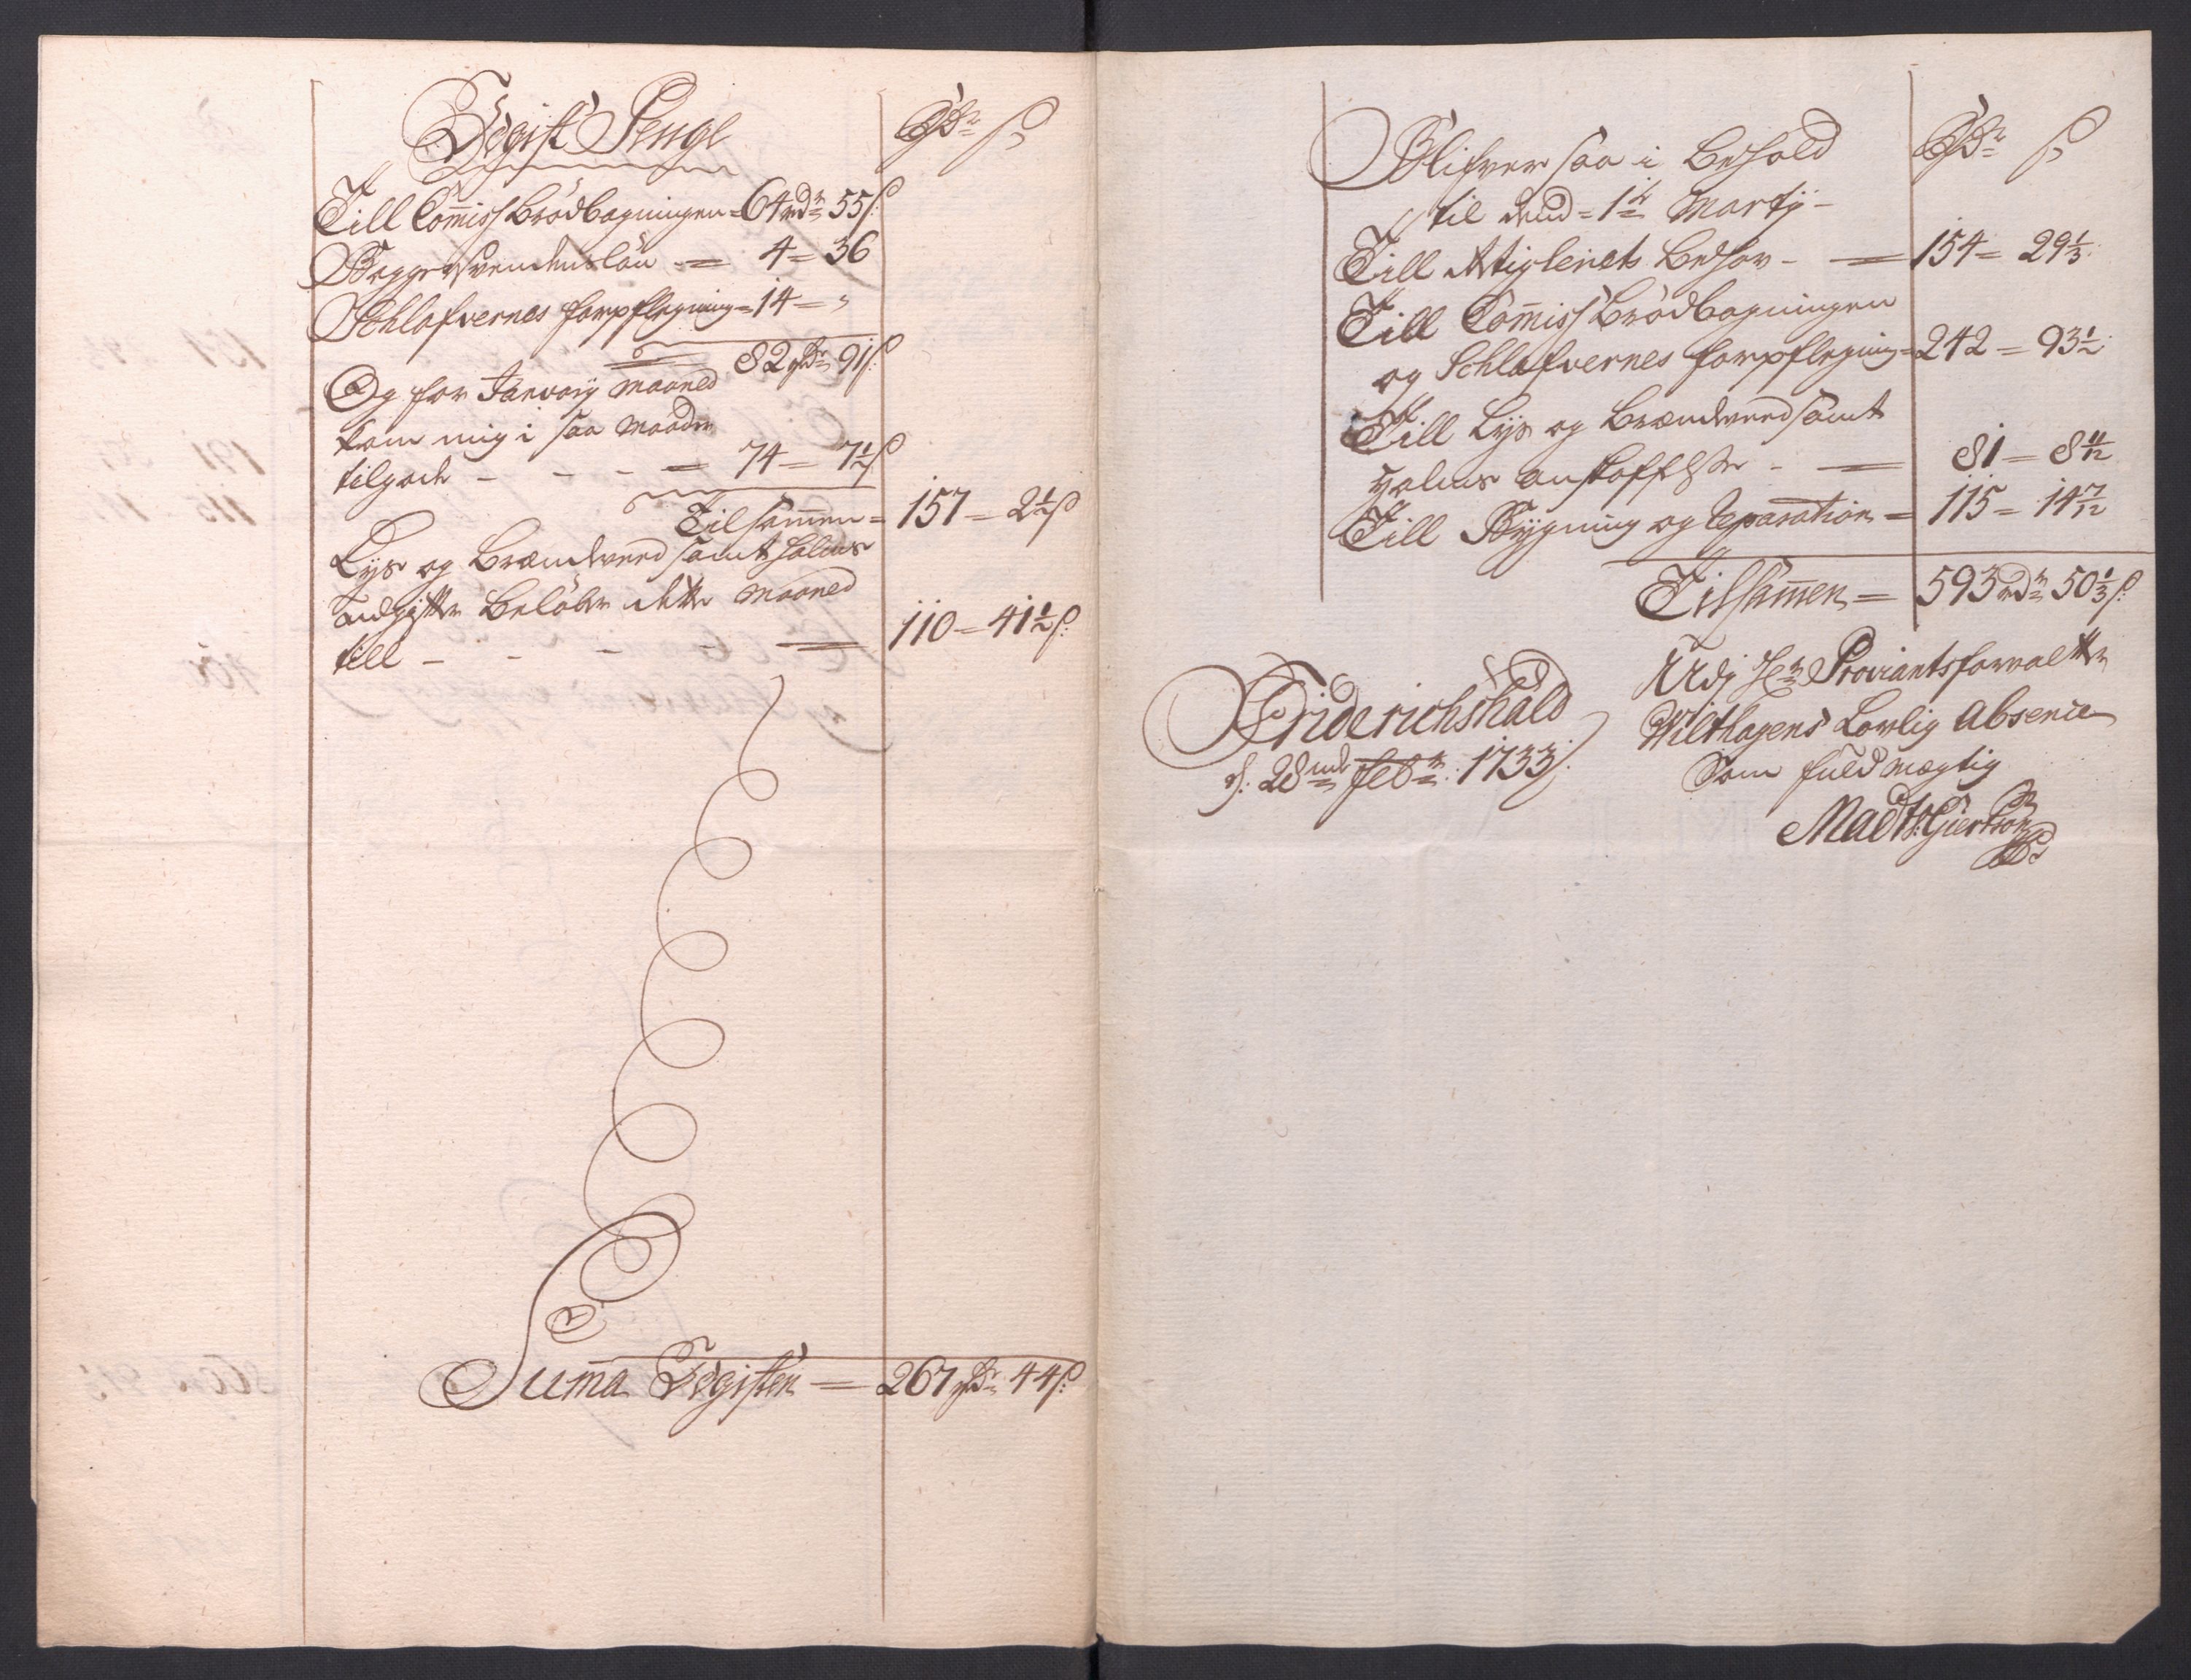 Udgift Penge
Rdr ß
Till Commiss Brödbagningen = 64 rdr 55 ß:
Baggersvendens lön = 4 = 36
Schlafvernes forpflegning = 14 = "
82 rdr 91 ß:
Og for Januarij Maaned
kom mig i saa Maader
tilgode - - - = 74 = 7½ ß
Tilsammen = 157 = 2½ ß
Lys og Brændeveed samt halms
udgifter beløber dette Maaned
till - - - - = 110 = 41½ ß:
Suma Udgiften = 267 rdr 44 ß:
Blifver saa i behold
til dend = 1te Martij -
Rdr ß
Till Artigleriets behov - = 154 = 29⅓:
Till Commiss Brödbagningen
og Schlafvernes forpflegning = 242 = 93½:
Till Lys og Brændeveed samt
halms anskaffelse - = 81 = 8 11/12
Till Bygning og Reparation = 115 = 14 7/12
Tilsammen = 593 rdr 50⅓ ß:
Friderichshald
d: 28de febr: 1733
Udj Hr Proviantsforvalter
Wilthagens Lovlig Absence
Som fuldmægtig
Madts: Giertson